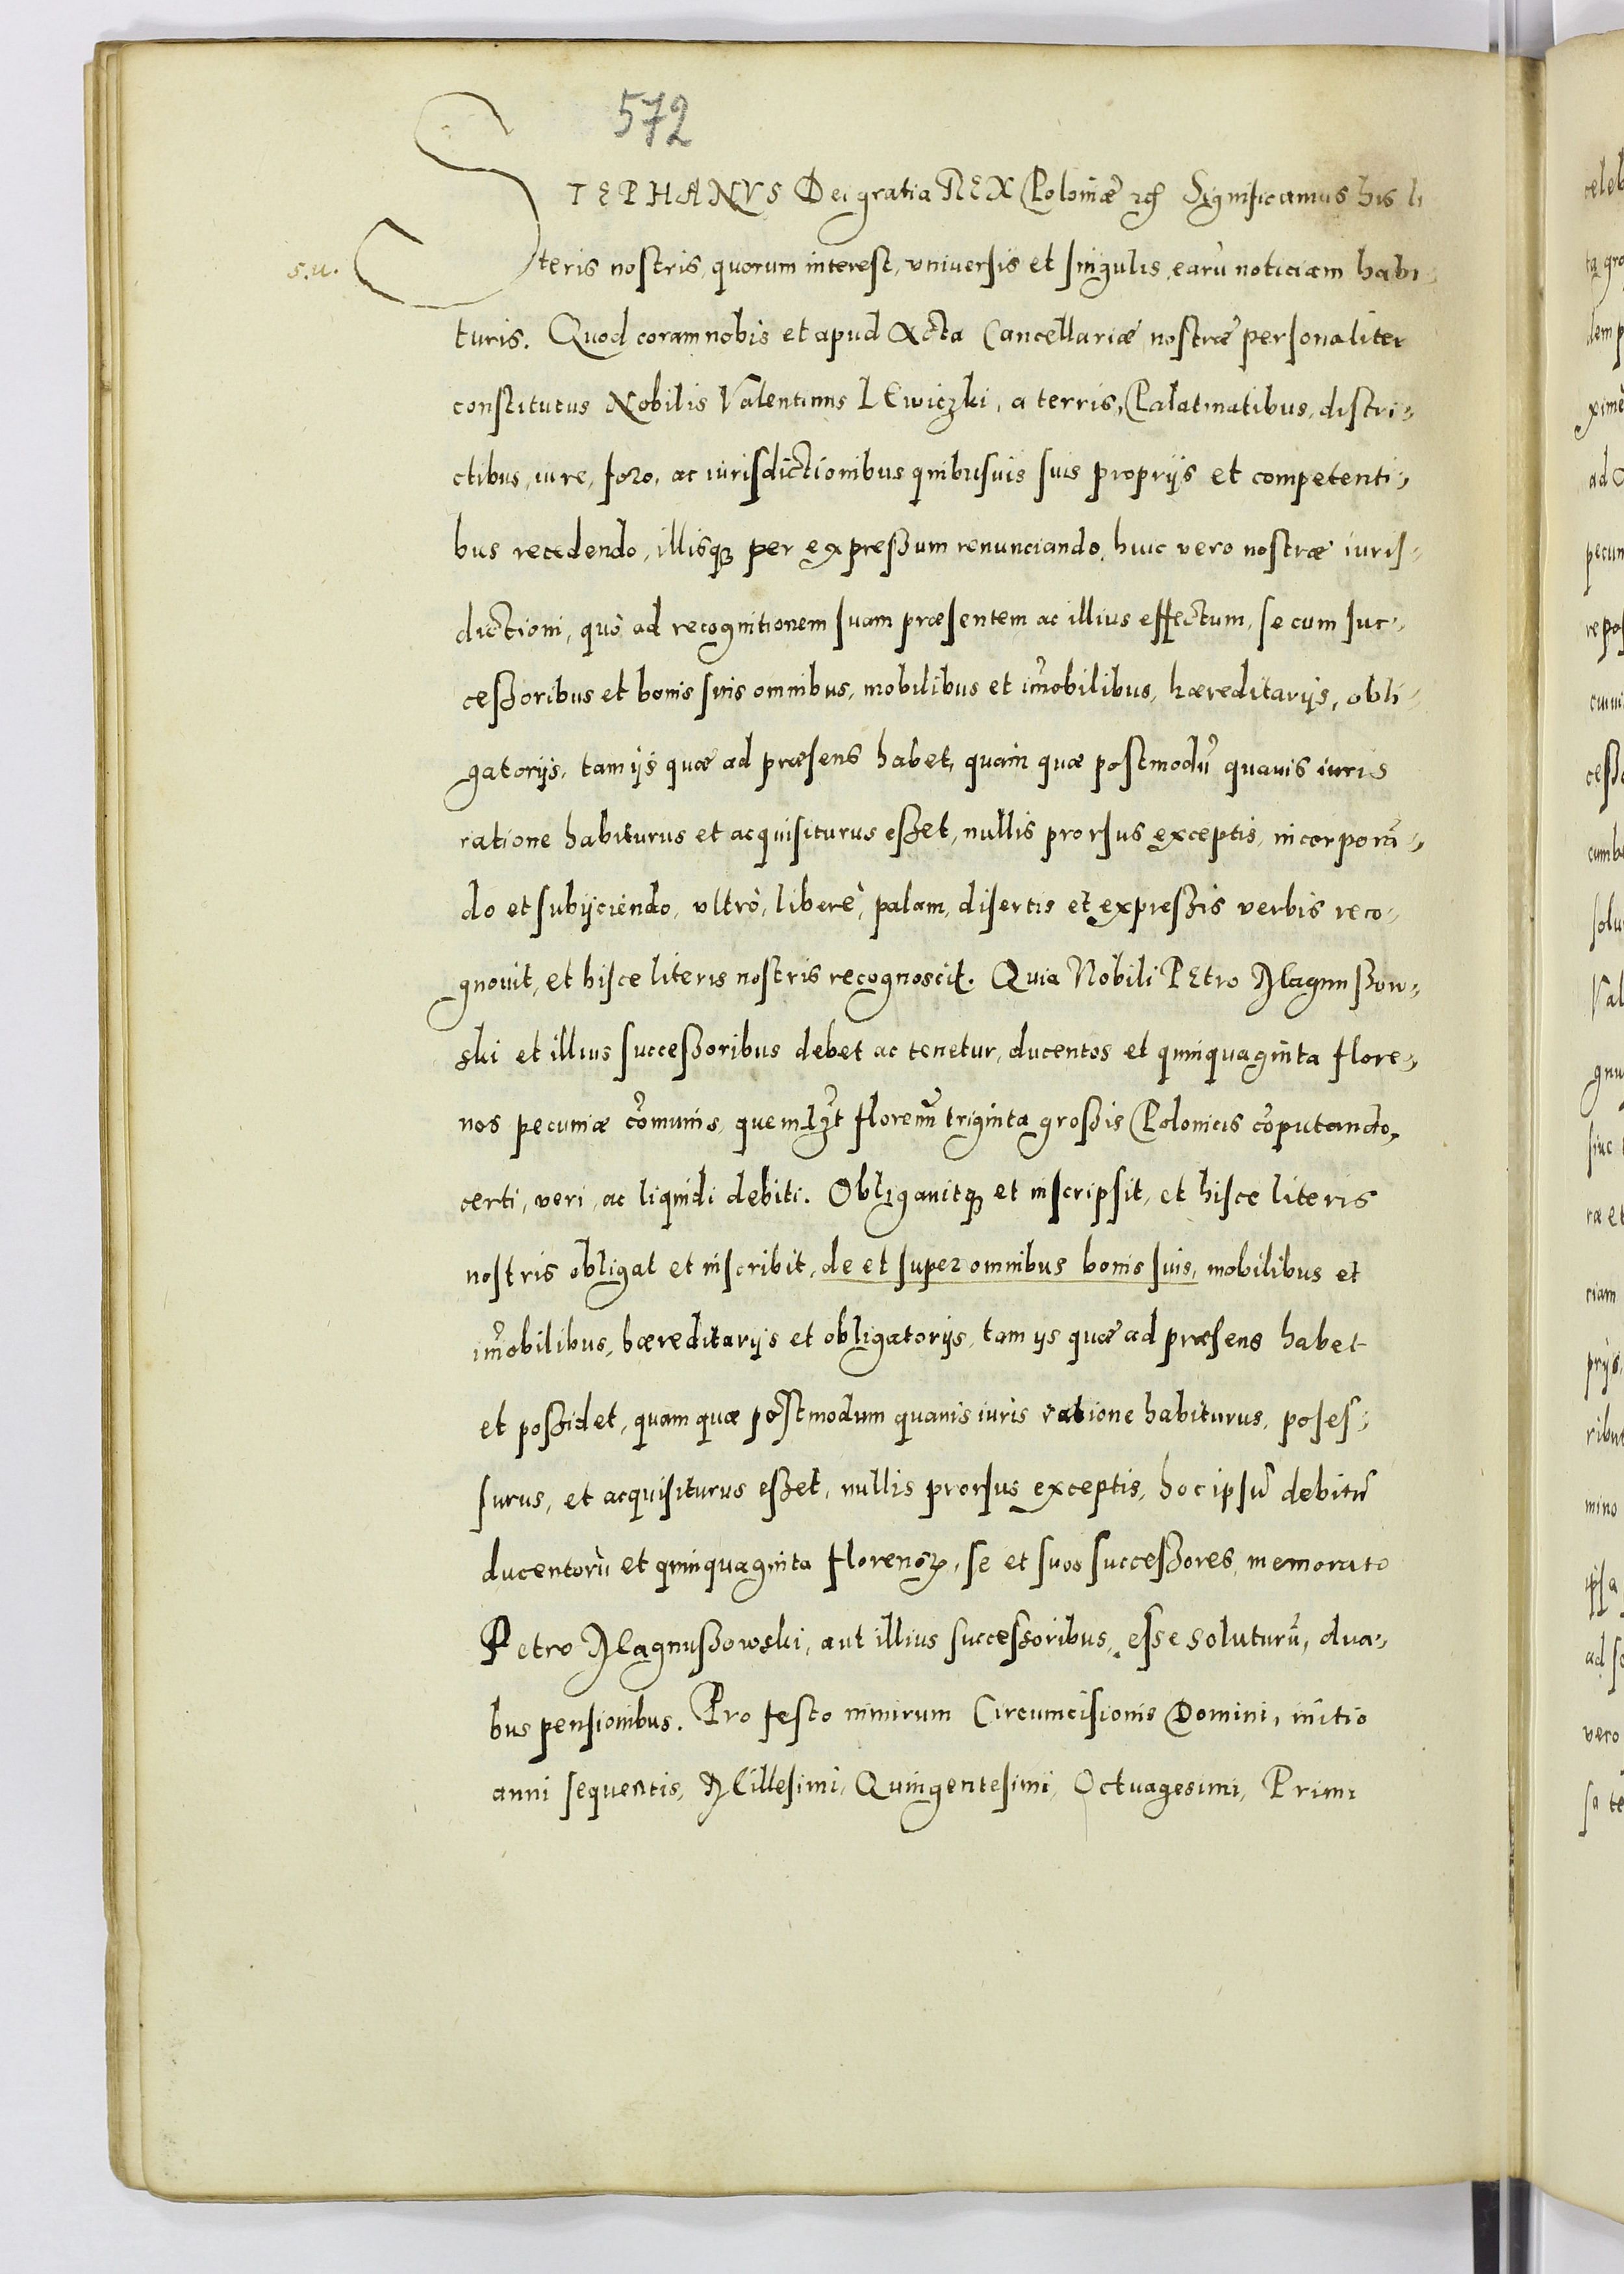 572
STEPHANVS Dei gratia REX Poloniæ etc Significamus his li
s.u.
teris nostris, quorum interest, vniuersis et singulis, earũ noticiam habi-
turis. Quod coram nobis et apud Acta Cancellariæ nostræ personaliter
constitutus Nobilis Valentinus LEwiczki, a terris, Palatinatibus, distri-
ctibus, iure, foro, ac iurisdictionibus quibusuis suis proprijs et competenti-
bus recedendo, illisq; per expreßum renunciando, huic vero nostræ iuris-
dictioni, quò ad recognitionem suam præsentem ac illius effectum, se cum suc-
ceßoribus et bonis suis omnibus, mobilibus et im̃obilibus, hæreditarijs, obli-
gatorijs, tam ijs quæ ad præsens habet, quam quæ postmodũ quauis iuris
ratione habiturus et acquisiturus eßet, nullis prorsus exceptis, incorporã-
do et subijciendo, vltrò, liberè, palam, disertis et expreßis verbis reco-
gnouit, et hisce literis nostris recognoscit. Quia Nobili PEtro Magnußow-
ski et illius succeßoribus debet ac tenetur, ducentos et quinquaginta flore-
nos pecuniæ com̃unis, quemlꝫt florenũ triginta großis Polonicis cõputando,
certi, veri, ac liquidi debiti. Obligauitq; et inscripsit, et hisce literis
nostris obligat et inscribit, de et super omnibus bonis suis, mobilibus et
im̃obilibus, hæreditarijs et obligatorijs, tam ijs quæ ad præsens habet
et poßidet, quam quæ postmodum quauis iuris ratione habiturus, poses-
surus, et acquisiturus eßet, nullis prorsus exceptis, hoc ipsũ debitũ
ducentorũ et quinquaginta florenoꝝ, se et suos succeßores, memorato
Petro Magnußowski, aut illius succeßoribus, esse soluturũ, dua-
bus pensionibus. Pro festo nimirum Circumcisionis Domini, initio
anni sequentis, Millesimi, Quingentesimi, Octuagesimi, Primi